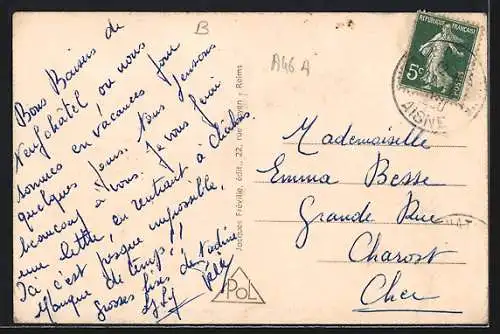 Bons Baisers de
Neufchâtel ou nous
sommes en vacances pour
quelques jours. Nous pensons
beaucoup à vous. Je vous ferai
une lettre, en rentrant à
Ici c'est presque impossible,
Manque de temps!!
Grosses bises de Nadine
B
A46A
RÉPUBLIQUE FRANÇAISE
5c
POSTES
AISNE
Jacques Fréville, édit., 22, rue - Reims
POL
Mademoiselle
Emma Besse
Grande Rue
Charost
Cher